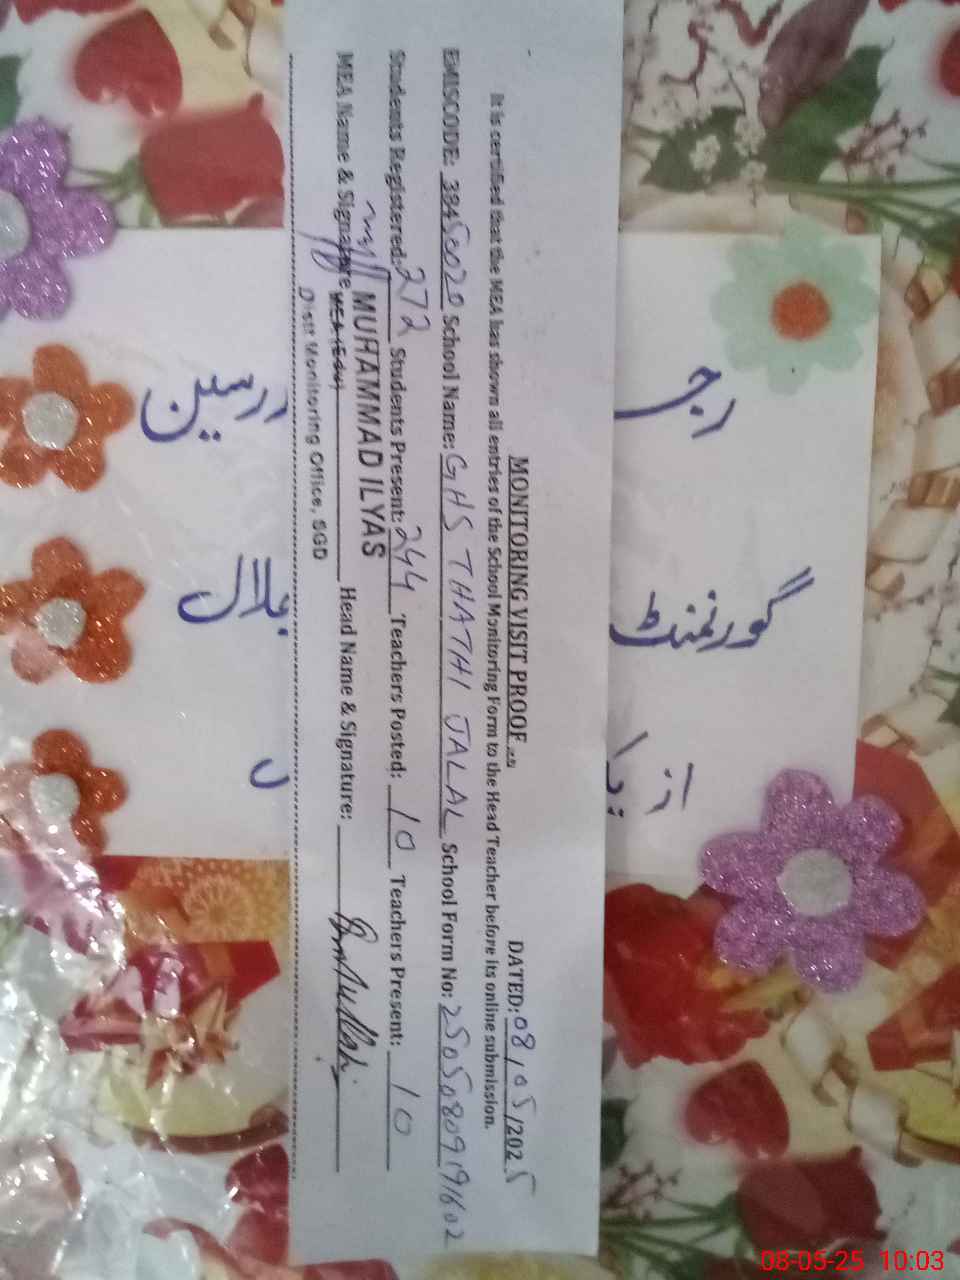 MONITORING VISIT PROOF
DATED: 08/05/2025
It is certified that the MEA has shown all entries of the School Monitoring Form to the Head Teacher before its online submission.
EMISCODE: 38450020 School Name: GHS THATHI JALAL School Form No: 25050809191602
Students Registered: 272 Students Present: 244 Teachers Posted: 10 Teachers Present: 10
MEA Name & Signature MUHAMMAD ILYAS Head Name & Signature:
MEA (Edu)
Distt Monitoring Office, SGD
رجـ
درسین
گورنمنٹ
بلال
از
08-05-25 10:03